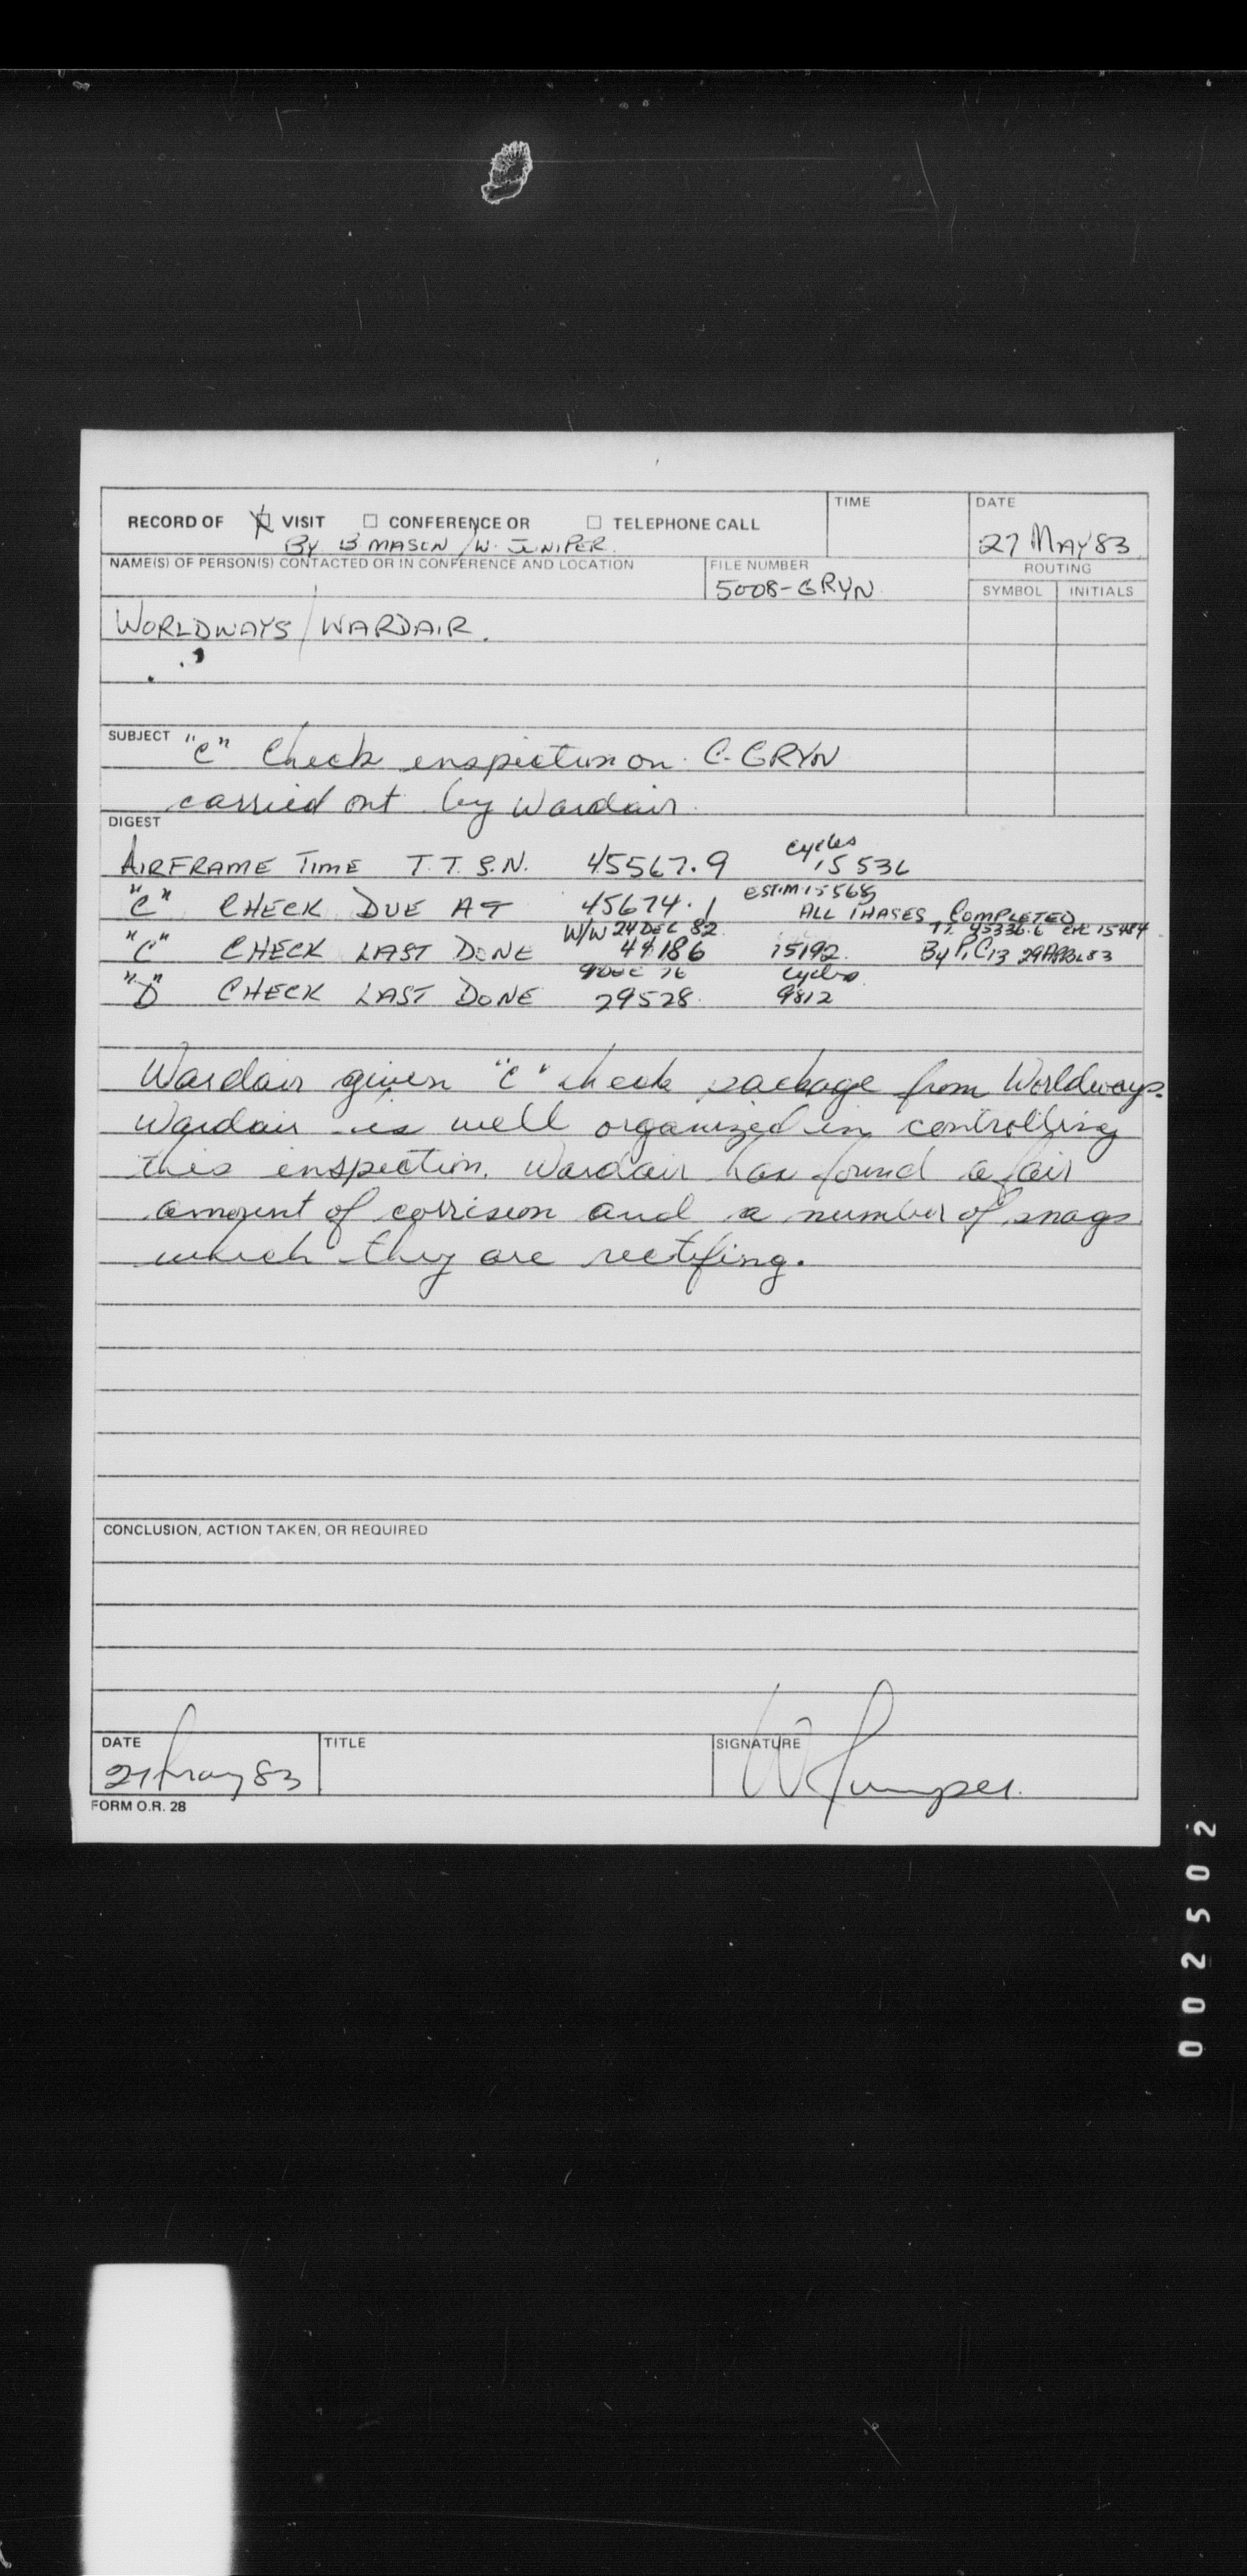 RECORD OF VISIT CONFERENCE OR TELEPHONE CALL
BY B MASON / W. JUNIPER.
TIME
DATE
27 MAY 83
NAME(S) OF PERSON(S) CONTACTED OR IN CONFERENCE AND LOCATION
FILE NUMBER
5008-GRYN
ROUTING
SYMBOL INITIALS
WORLDWAYS / WARDAIR.
SUBJECT "C" Check enspection on C-GRYN
carried out by Wardair.
DIGEST
AIRFRAME TIME T.T.S.N. 45567.9 cycles 15536
"C" CHECK DUE AT 45674.1 ESTIM 15568
ALL PHASES COMPLETED
TT. 45336.6 CYC 15484
"C" CHECK LAST DONE W/W 24 DEC 82 44186 15192. By 29 APRIL 83
"D" CHECK LAST DONE 9 DEC 76 29528. cycles 9812
Wardair given "C" check package from Worldways.
Wardair is well organized in controlling
this enspection. Wardair has found a fair
amount of corrision and a number of snags
which they are rectifing.
CONCLUSION, ACTION TAKEN, OR REQUIRED
DATE
27 May 83
TITLE
SIGNATURE
W Juniper.
FORM O.R. 28
002502